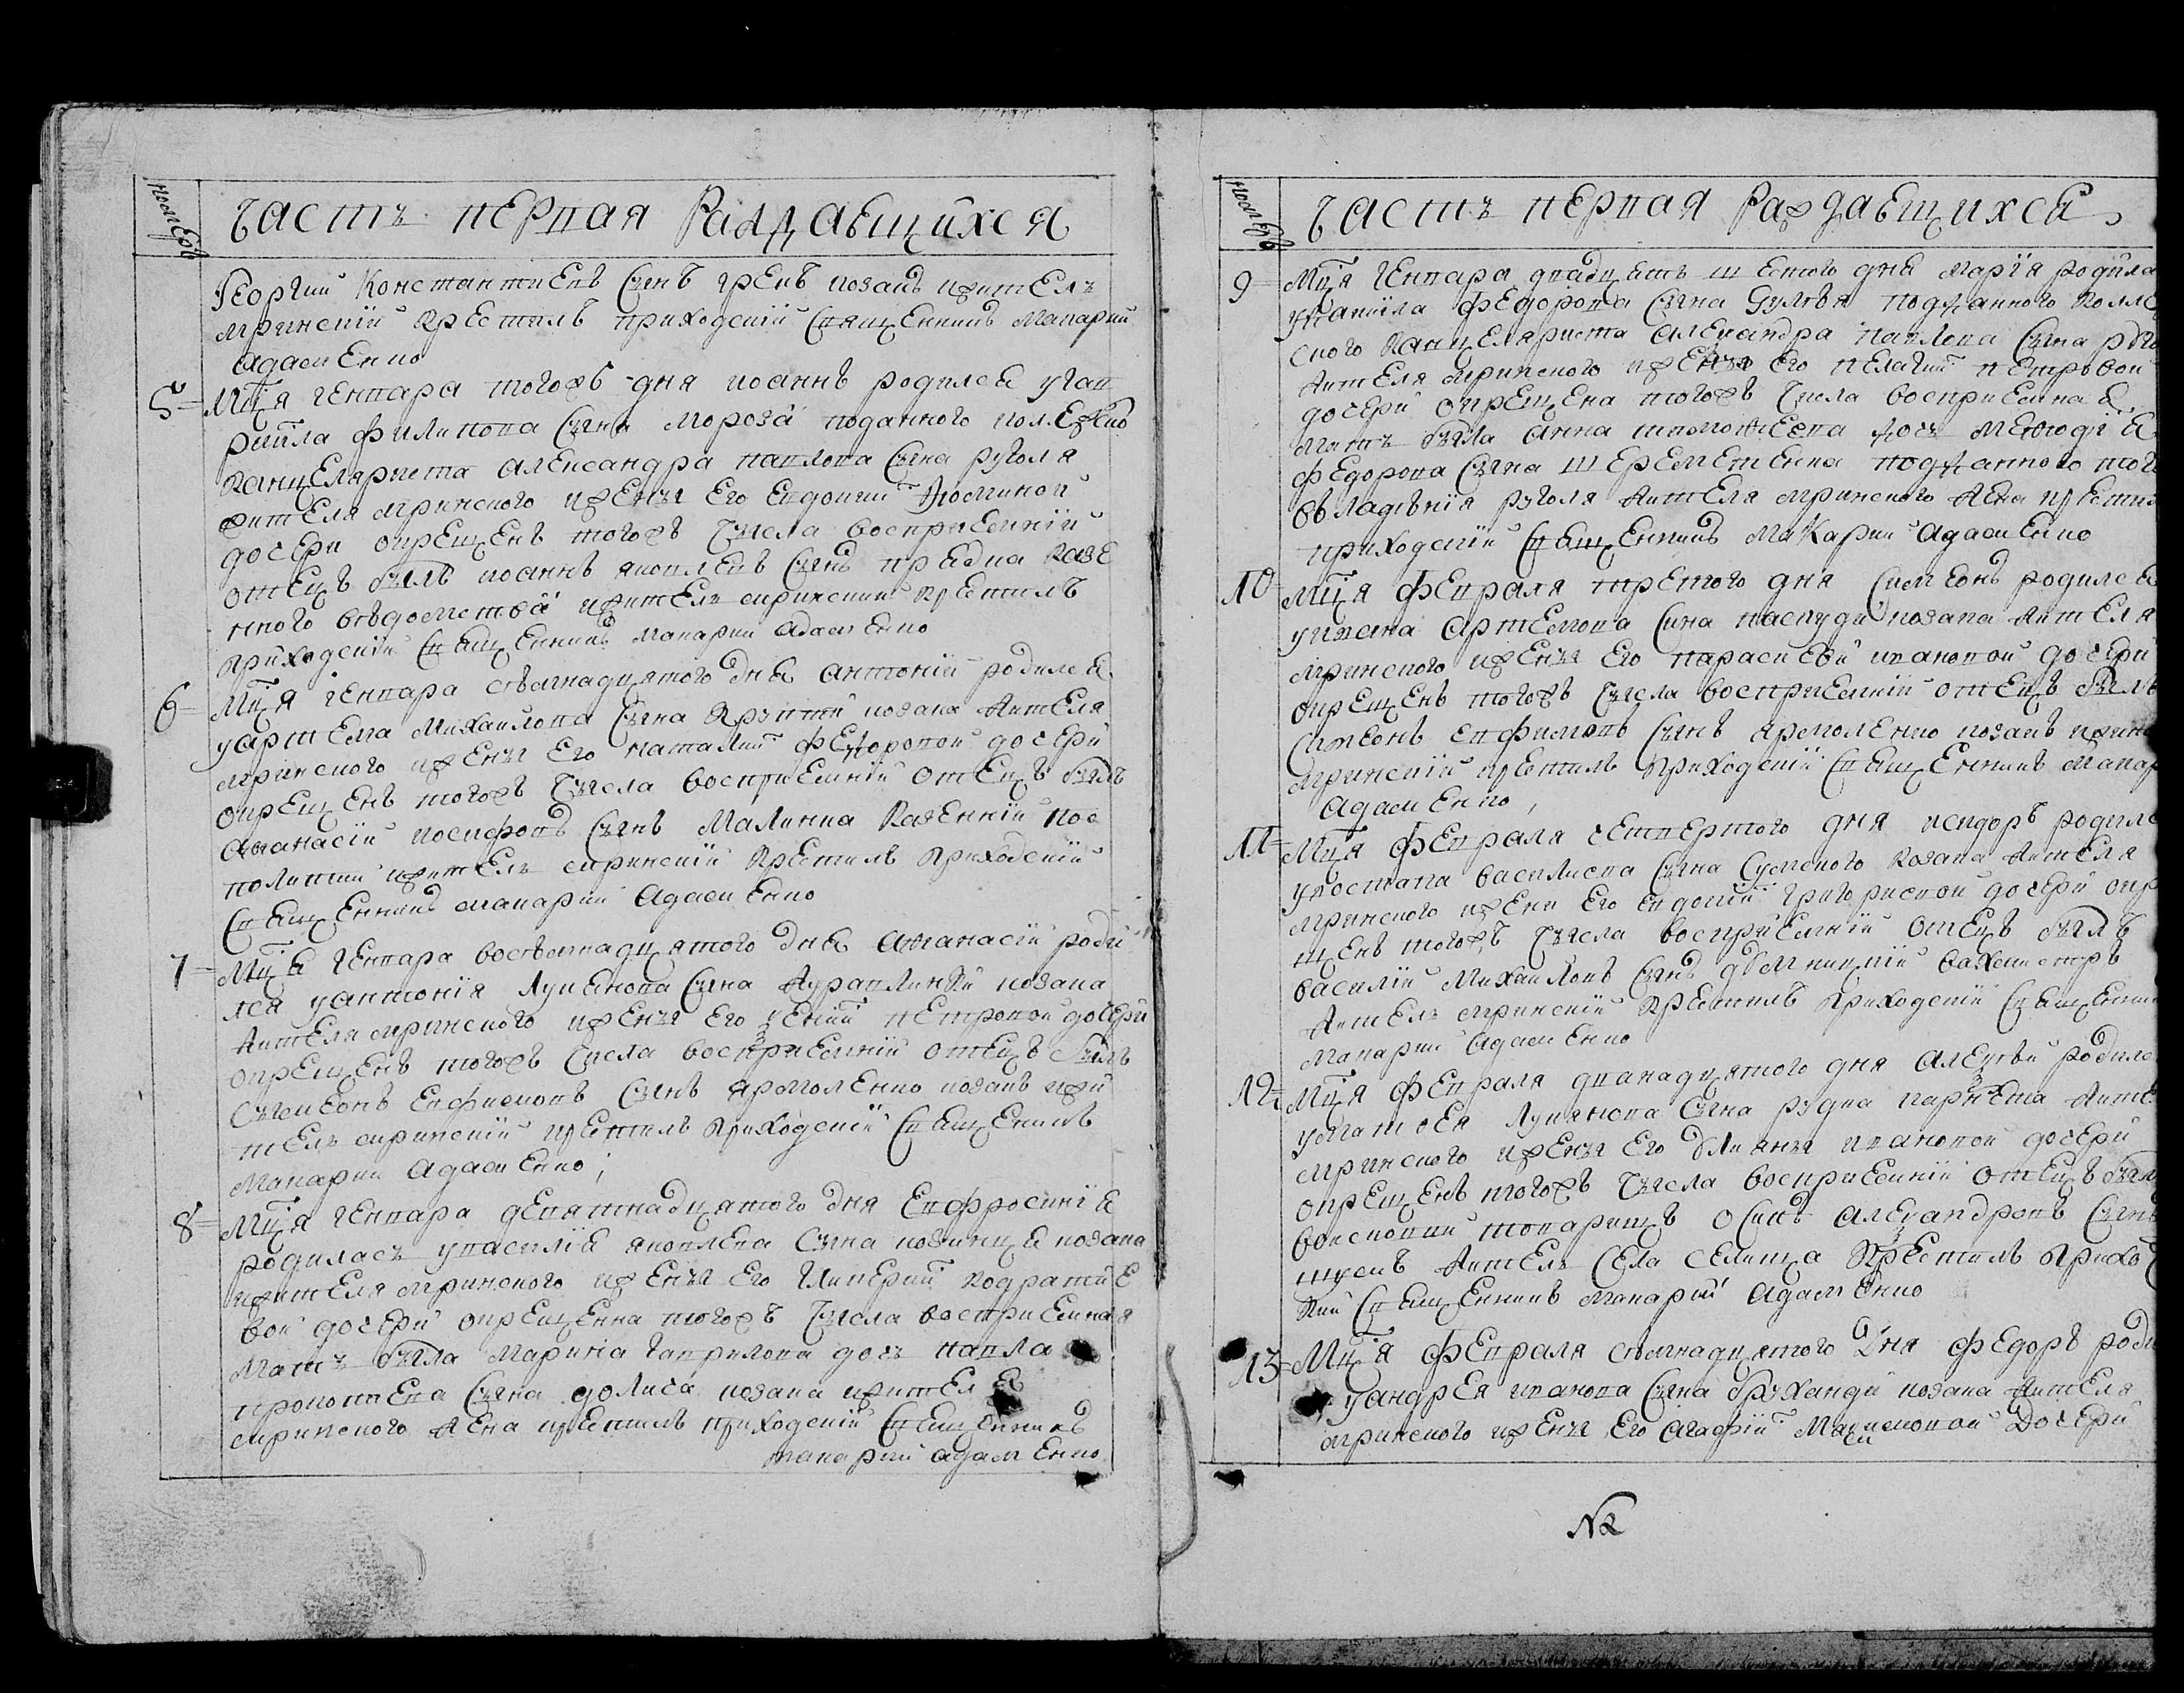 номеръ
часть первая Раждаещихся
Георгии Константиевъ Сынъ грекъ козакъ житель
мринский Крестилъ приходский Священникъ Макарий
Адаменко
5 Мця генвара тогожъ дня иоаннъ родился угав
риила Филипова Сына Мороза поданного колежско
Канцеляриста Александра павлова Сына
жителя мринского ижены Его Евдокии Фоминой
дочери окрещенъ тогожъ Числа восприемний
отецъ былъ иоаннъ яковлевъ Сынъ Казе
нного въдомства житель мринский крестилъ
Приходский Священникъ Макарий Адаменко
6 Мця генвара съмнадцятого дня антоний родился
уартема Михаилова Сына козака жителя
мринского ижены Его наталии Федоровой дочери
окрещенъ тогожъ Числа восприемний отецъ былъ
Афанасий иосифовъ Сынъ Малинка Казенний пос
политий житель мринский Крестилъ Приходский
Священникъ макарий Адаменко
7 Мця генвара восъмнадцятого дня Афанасий роди
лся уантония Лукянова Сына Журавлинки козака
жителя мринского ижены Его Петровой дочери
окрещенъ тогожъ Числа восприемний отецъ былъ
Сымеонъ Евфимовъ Сынъ Ярмоленко козакъ жи
тель мринский крестилъ Приходский Священникъ
Макарий Адаменко,
8 Мця генвара девятнадцятого дня Евфросиния
родилась увасилия яковлева Сына козака
жителя мринского ижены Его Гликерии Кодратие
вой дочери окрещенна тогожъ Числа восприемная
мать была Марина Гаврилова дочь павла
прокопиева Сына козака жителя
мринского жена крестилъ приходский Священникъ
макарий адаменко
номеръ
часть первая Раждаещихся,
9 Мця генвара двадцять шестого дня Мария родила
Федорова Сына подданного Колле
ского Канцеляриста Александра павлова Сына
жителя мринского ижены Его Пелагии Петровой
дочери окрещена тогожъ Числа восприемная
Мать была Анна дочь Мефодия
Федорова Сына Шереметенка подданного тог
овладъния жителя мринского жена крестил
приходский Священникъ Макарий Адаменко
10 Мця Февраля третого дня Симеонъ родился
Артемова Сина козака жителя
мринского ижены Его параскевии ивановой дочери
окрещенъ тогожъ Числа восприемний отецъ былъ
Симеонъ Евфимовъ Сынъ ярмоленко козакъ
мринский крестилъ Приходский Священникъ Макар
Адаменко,
11 Мця Февраля четвертого дня исидоръ родилс
уостапа василиева Сына Сумского козака жителя
мринского ижени Его Евдокии Григориевой дочери окр
щенъ тогожъ Числа восприемний отецъ былъ
василий Михаиловъ Сынъ вахмистръ
житель мринский Крестилъ Приходский Священни
Макарий Адаменко
12 Мця Февраля дванадцятого дня Алексъй родилс
уматфея Лукянова Сына жите
мринского ижены Его ивановой дочери
окрещенъ тогожъ Числа восприемний отецъ был
воисковий товарищъ Осипъ Александровъ Сынъ
житель Села Селища Крестилъ Прихо
кий Священникъ Макарий Адаменко
13 Мця Февраля съмнадцятого Дня Федоръ роди
уандрея иванова Сына козака жителя
мринского ижены Его агафии Максимовой Дочери
№2